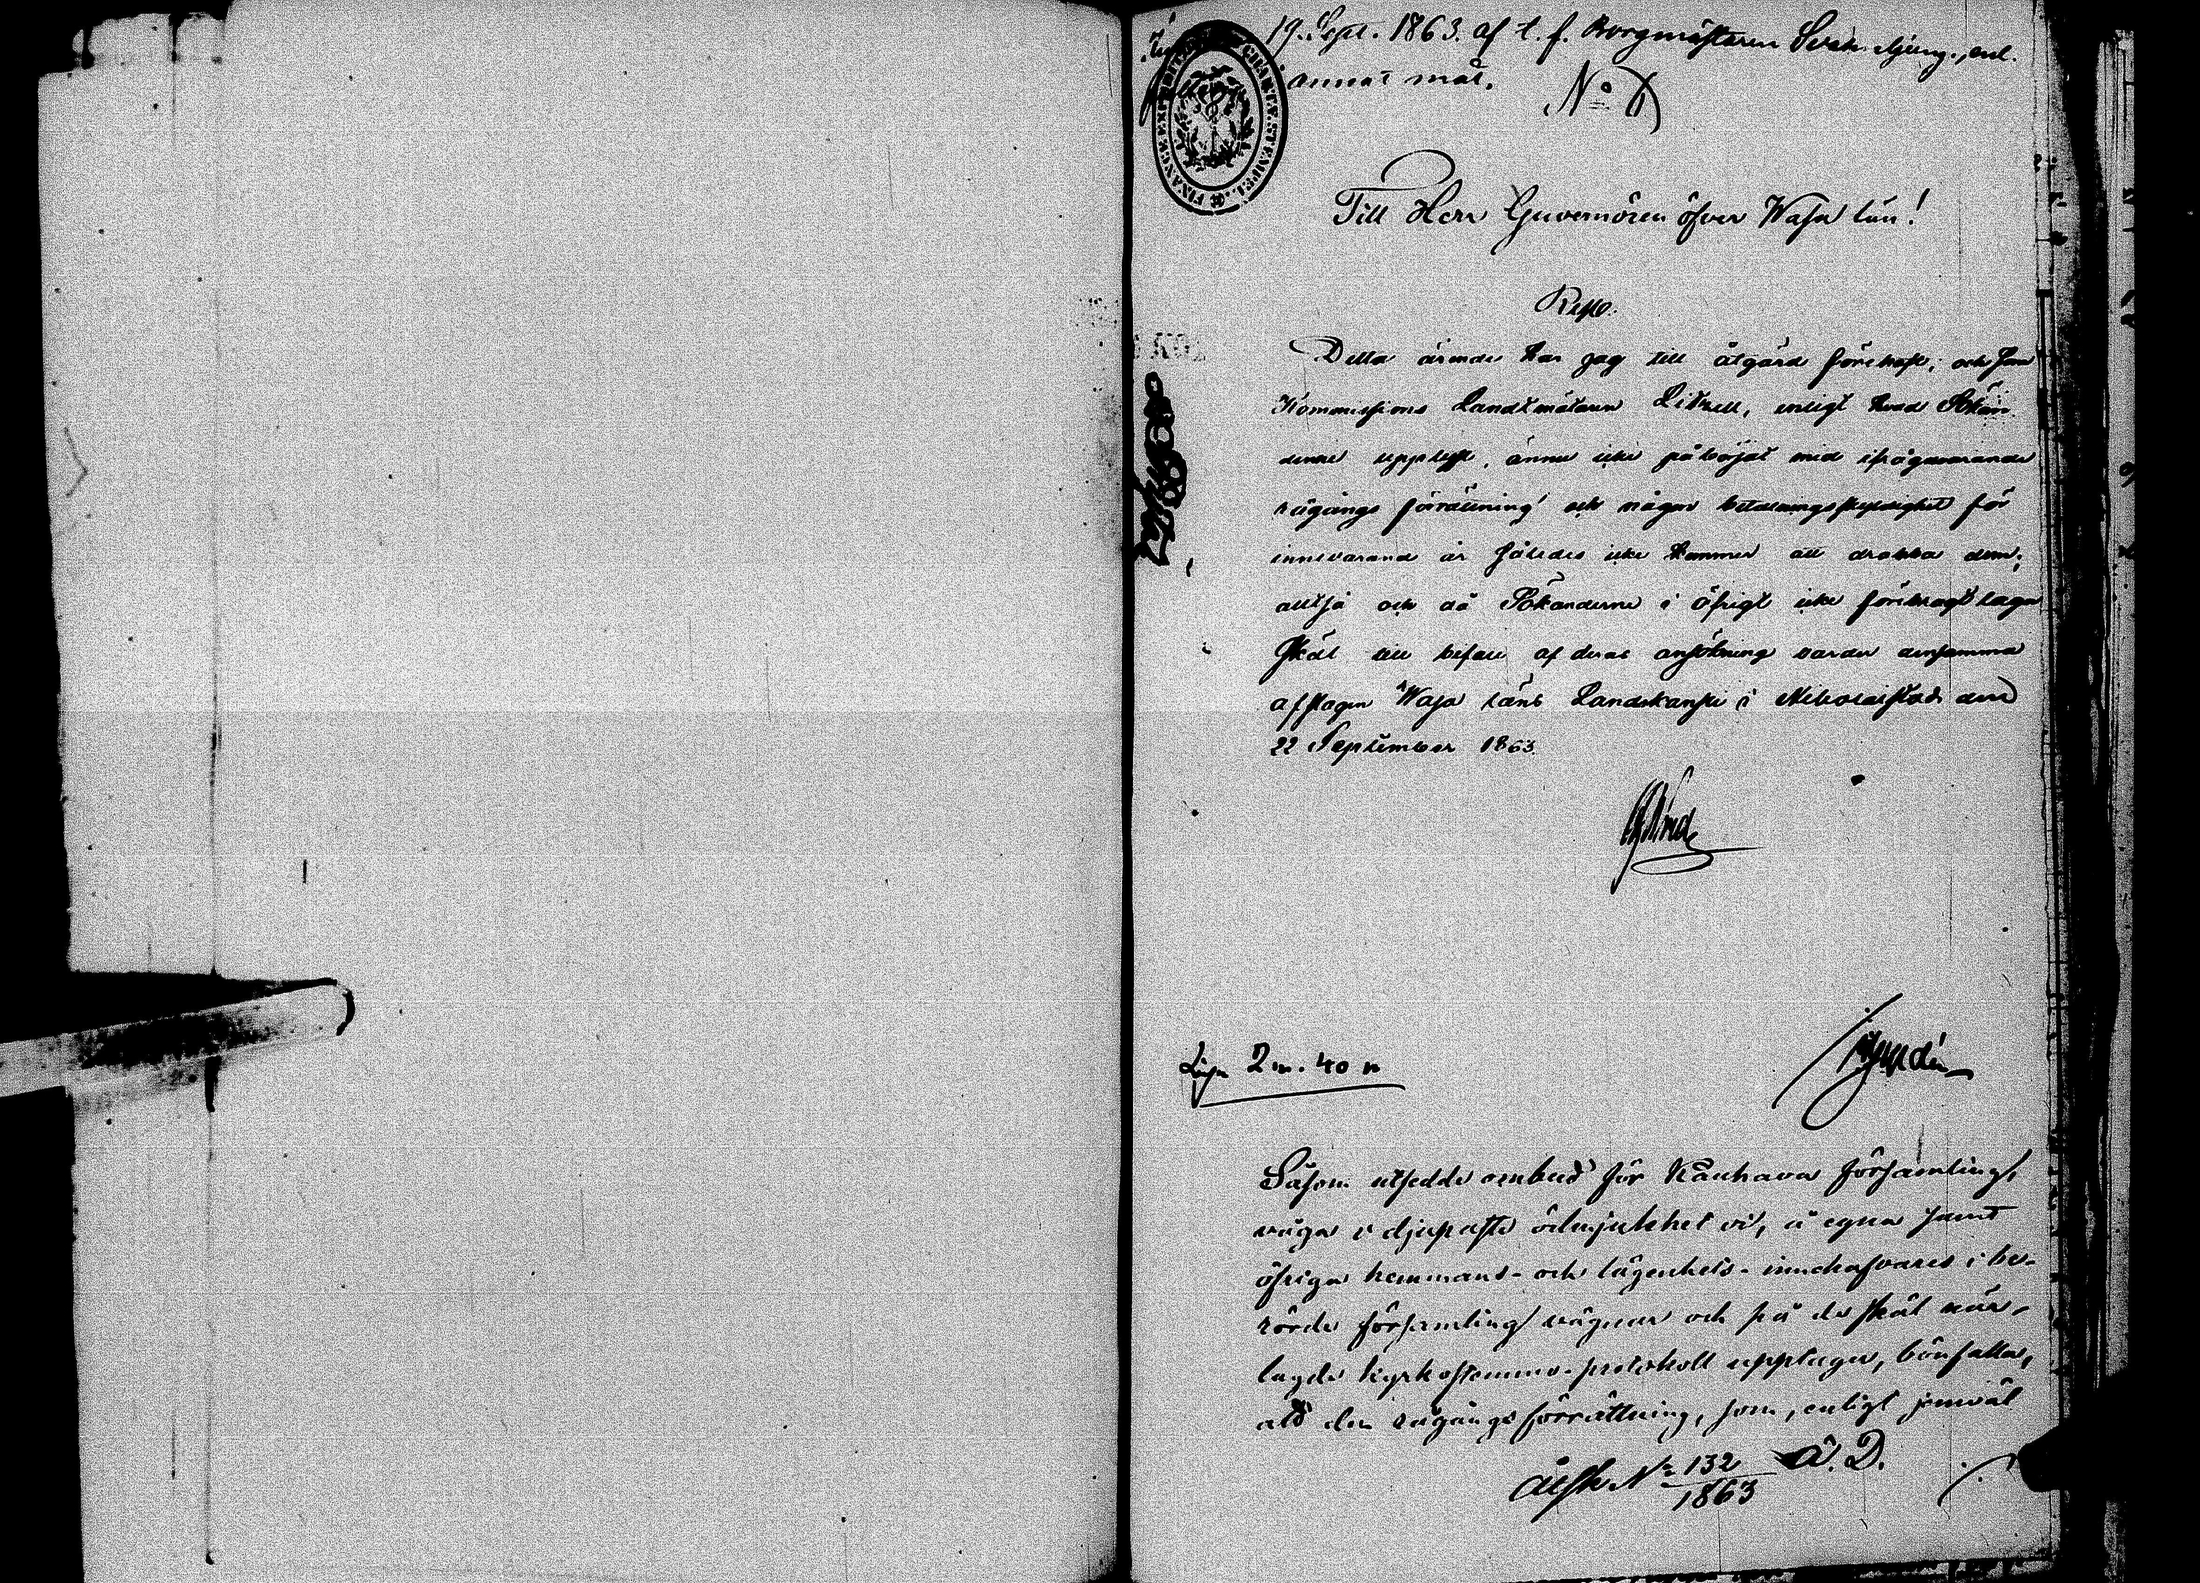 19. Sept. 1863. af t. f. Borgmästaren enl.
annat mål.
No
FINANCE EXPEDITION CHARTÆ STEMPEL
Till Herr Guvernören öfver Wasa län!
Res.
Detta ärende har jag till åtgärd förehaft; och som
Kommissions Landtmätaren Litzell, enligt hvad Sökan
derne upplyst, ännu icke påbörjat med ifrågavarande
rågångs förrättning och någon betalningsskyldighet för
innevarande år således icke kommer att drabba dem;
alltså och då Sökanderne i öfrigt icke förebragt laga
skäl till bifall af deras ansökning varder densamma
afslagen Wasa läns Landskansli i Nikolaistad den
22 September 1863.
Lösen 2 m. 40 p
Såsom utsedde ombud för Kauhava församling,
våga i djupaste ödmjukhet vi, å egna samt
öfriga hemmans- och lägenhets-innehafvares i be-
rörde församling vägnar och på de skäl när-
lagde Kyrkostämmo-protokoll upptager, bönfalla,
att den rågångsförrättning, som, enligt jemväl
No 132 A. D.
1863